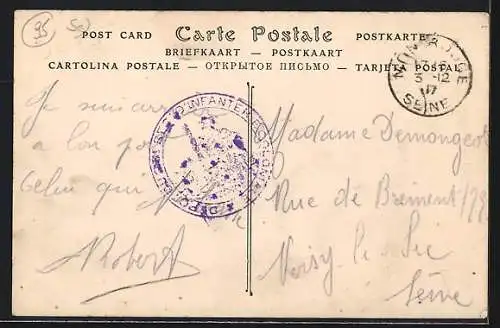 95
POST CARD Carte Postale POSTKARTE
BRIEFKAART — POSTKAART
CARTOLINA POSTALE — ОТКРЫТОЕ ПИСЬМО — TARJETA POSTAL
MONTROUGE
3-12
17
SEINE
D'INFANTERIE
Je suis
a bon port
Celui qui
Robert
Madame Demongeot
Rue de Brément 179
Noisy-le-Sec
Seine